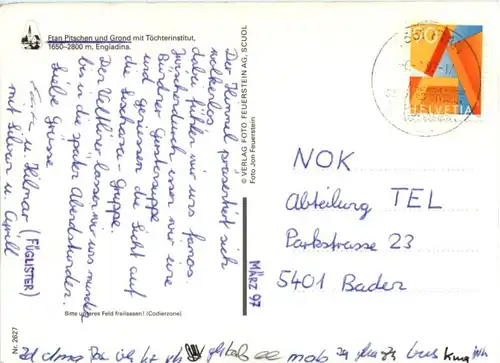 Ftan Pitschen und Grond mit Töchterinstitut,
1650–2800 m, Engiadina.
Der Himmel präsentiert sich
wolkenlos
dabei fühlen wir uns famos.
Zwischendurch essen wir eine
Bündner Gerstensuppe
und geniessen die Sicht auf
die Sesvenna-Gruppe.
Den Valtliner lassen wir uns munden
bis in die späten Abendstunden.
Liebe Grüsse
u. Hilmar (FÜGLISTER)
mit Silvan u. Cyrill
Bitte unteres Feld freilassen! (Codierzone)
Nr. 2627
© VERLAG FOTO FEUERSTEIN AG, SCUOL
Foto Jon Feuerstein
MÄRZ 97
50
HELVETIA
NOK
Abteilung TEL
Parkstrasse 23
5401 Baden